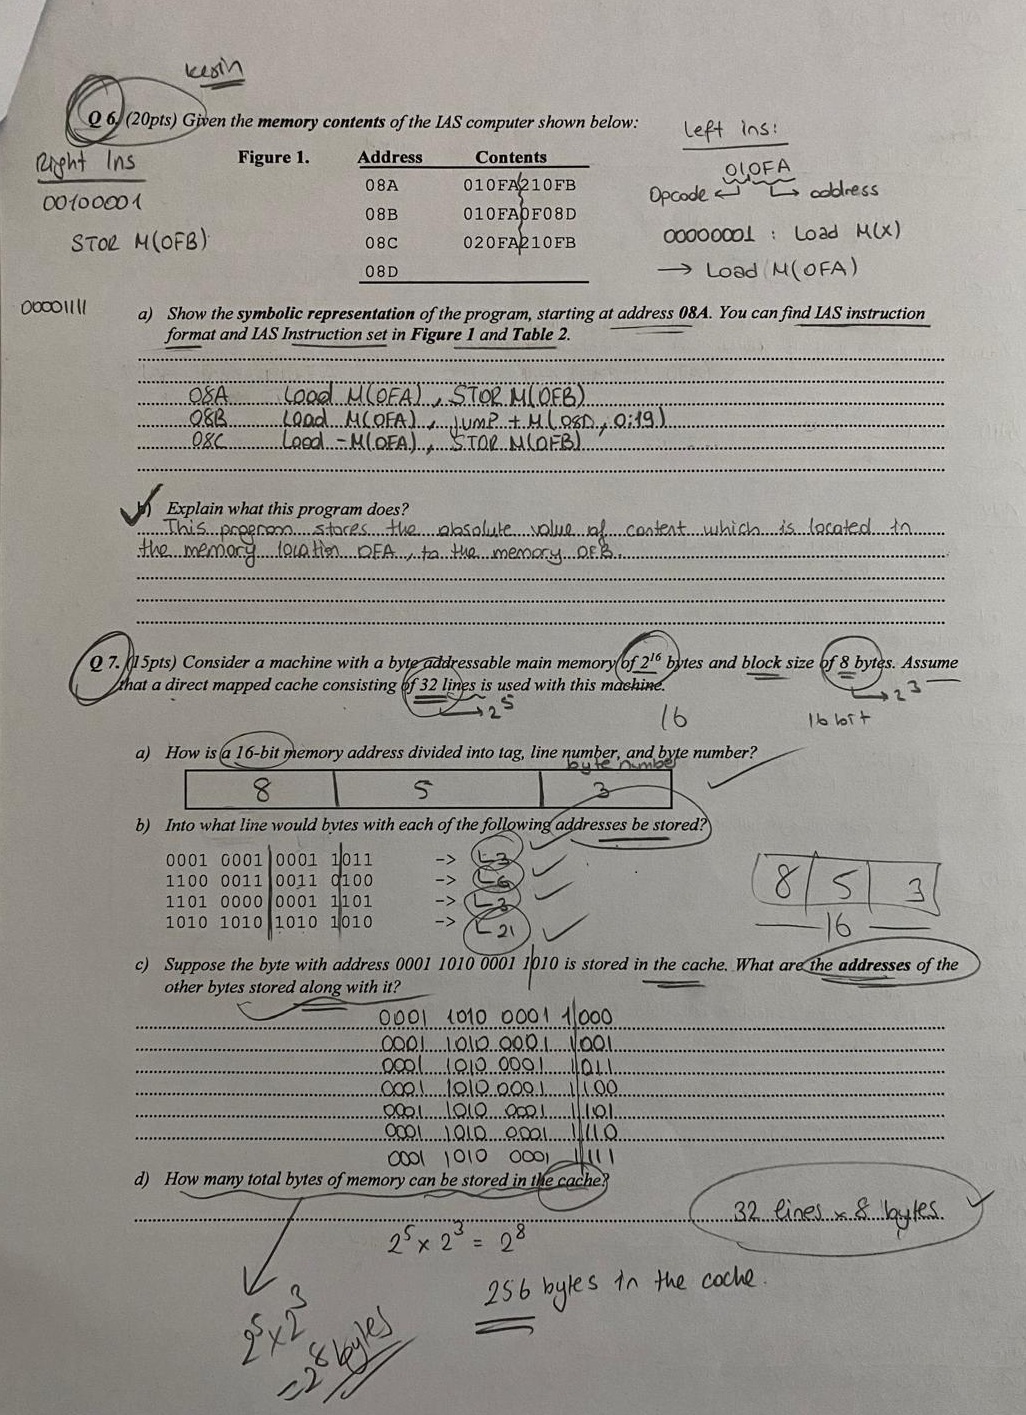 kesin
Q 6. (20pts) Given the memory contents of the IAS computer shown below:
Left ins:
Right Ins
Figure 1. Address Contents
010FA
Opcode ← → address
08A 010FA210FB
00100001
08B 010FA0F08D
STOR M(0FB)
08C 020FA210FB
00000001 : Load M(X)
08D
→ Load M(0FA)
00001111
a) Show the symbolic representation of the program, starting at address 08A. You can find IAS instruction
format and IAS Instruction set in Figure 1 and Table 2.
08A Load M(0FA), STOR M(0FB)
08B Load M(0FA), jump + M(08D, 0:19)
08C Load -M(0FA), STOR M(0FB)
b) Explain what this program does?
This program stores the absolute value of content which is located in
the memory location 0FA, to the memory 0FB.
Q 7. (15pts) Consider a machine with a byte addressable main memory of 2¹⁶ bytes and block size of 8 bytes. Assume
that a direct mapped cache consisting of 32 lines is used with this machine.
→ 2³
→ 2⁵
16
16 bit
a) How is a 16-bit memory address divided into tag, line number, and byte number?
byte number
8 5 3
b) Into what line would bytes with each of the following addresses be stored?
0001 0001 0001 1011 -> L3
1100 0011 0011 0100 -> L6
1101 0000 0001 1101 -> L3
1010 1010 1010 1010 -> L21
8 5 3
16
c) Suppose the byte with address 0001 1010 0001 1010 is stored in the cache. What are the addresses of the
other bytes stored along with it?
0001 1010 0001 1000
0001 1010 0001 1001
0001 1010 0001 1011
0001 1010 0001 1100
0001 1010 0001 1101
0001 1010 0001 1110
0001 1010 0001 1111
d) How many total bytes of memory can be stored in the cache?
32 lines x 8 bytes.
2⁵ x 2³ = 2⁸
256 bytes in the cache.
2⁵ x 2³
= 2⁸ bytes